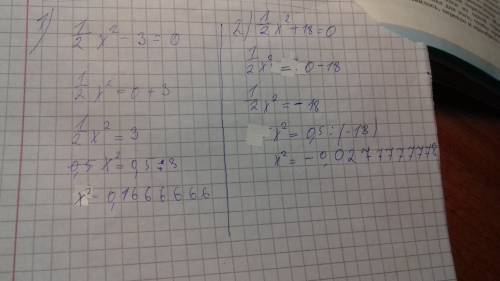 1) 1/2 x² - 3 = 0
1/2 x² = 0 + 3
1/2 x² = 3
0,5 x² = 0,5 : 3
x² = 0,1666666
2) 1/2 x² + 18 = 0
1/2 x² = 0 - 18
1/2 x² = - 18
x² = 0,5 : (-18)
x² = - 0,02777777778